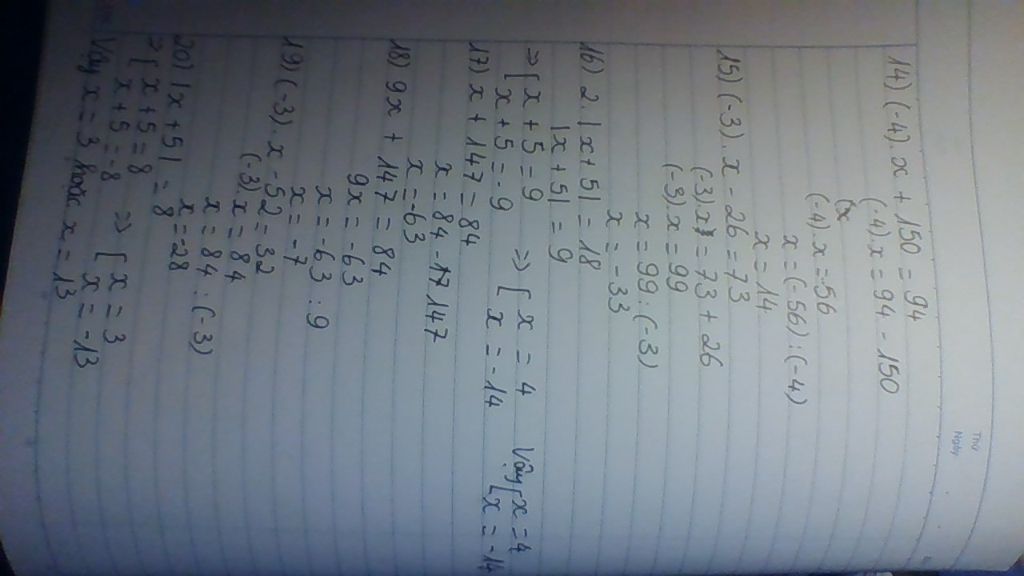 Thứ
Ngày
14) (-4).x + 150 = 94
(-4).x = 94 - 150
(-4).x = 56
x = (-56) : (-4)
x = 14
15) (-3).x - 26 = 73
(-3).x = 73 + 26
(-3).x = 99
x = 99 : (-3)
x = -33
16) 2.|x + 5| = 18
|x + 5| = 9
=> [ x + 5 = 9 => [ x = 4 Vậy [ x = 4
x + 5 = -9 x = -14 x = -14
17) x + 147 = 84
x = 84 - 147
x = -63
18) 9x + 147 = 84
9x = -63
x = -63 : 9
x = -7
19) (-3).x - 52 = 32
(-3).x = 84
x = 84 : (-3)
x = -28
20) |x + 5| = 8
=> [ x + 5 = 8 => [ x = 3
x + 5 = -8 x = -13
Vậy x = 3 hoặc x = 13